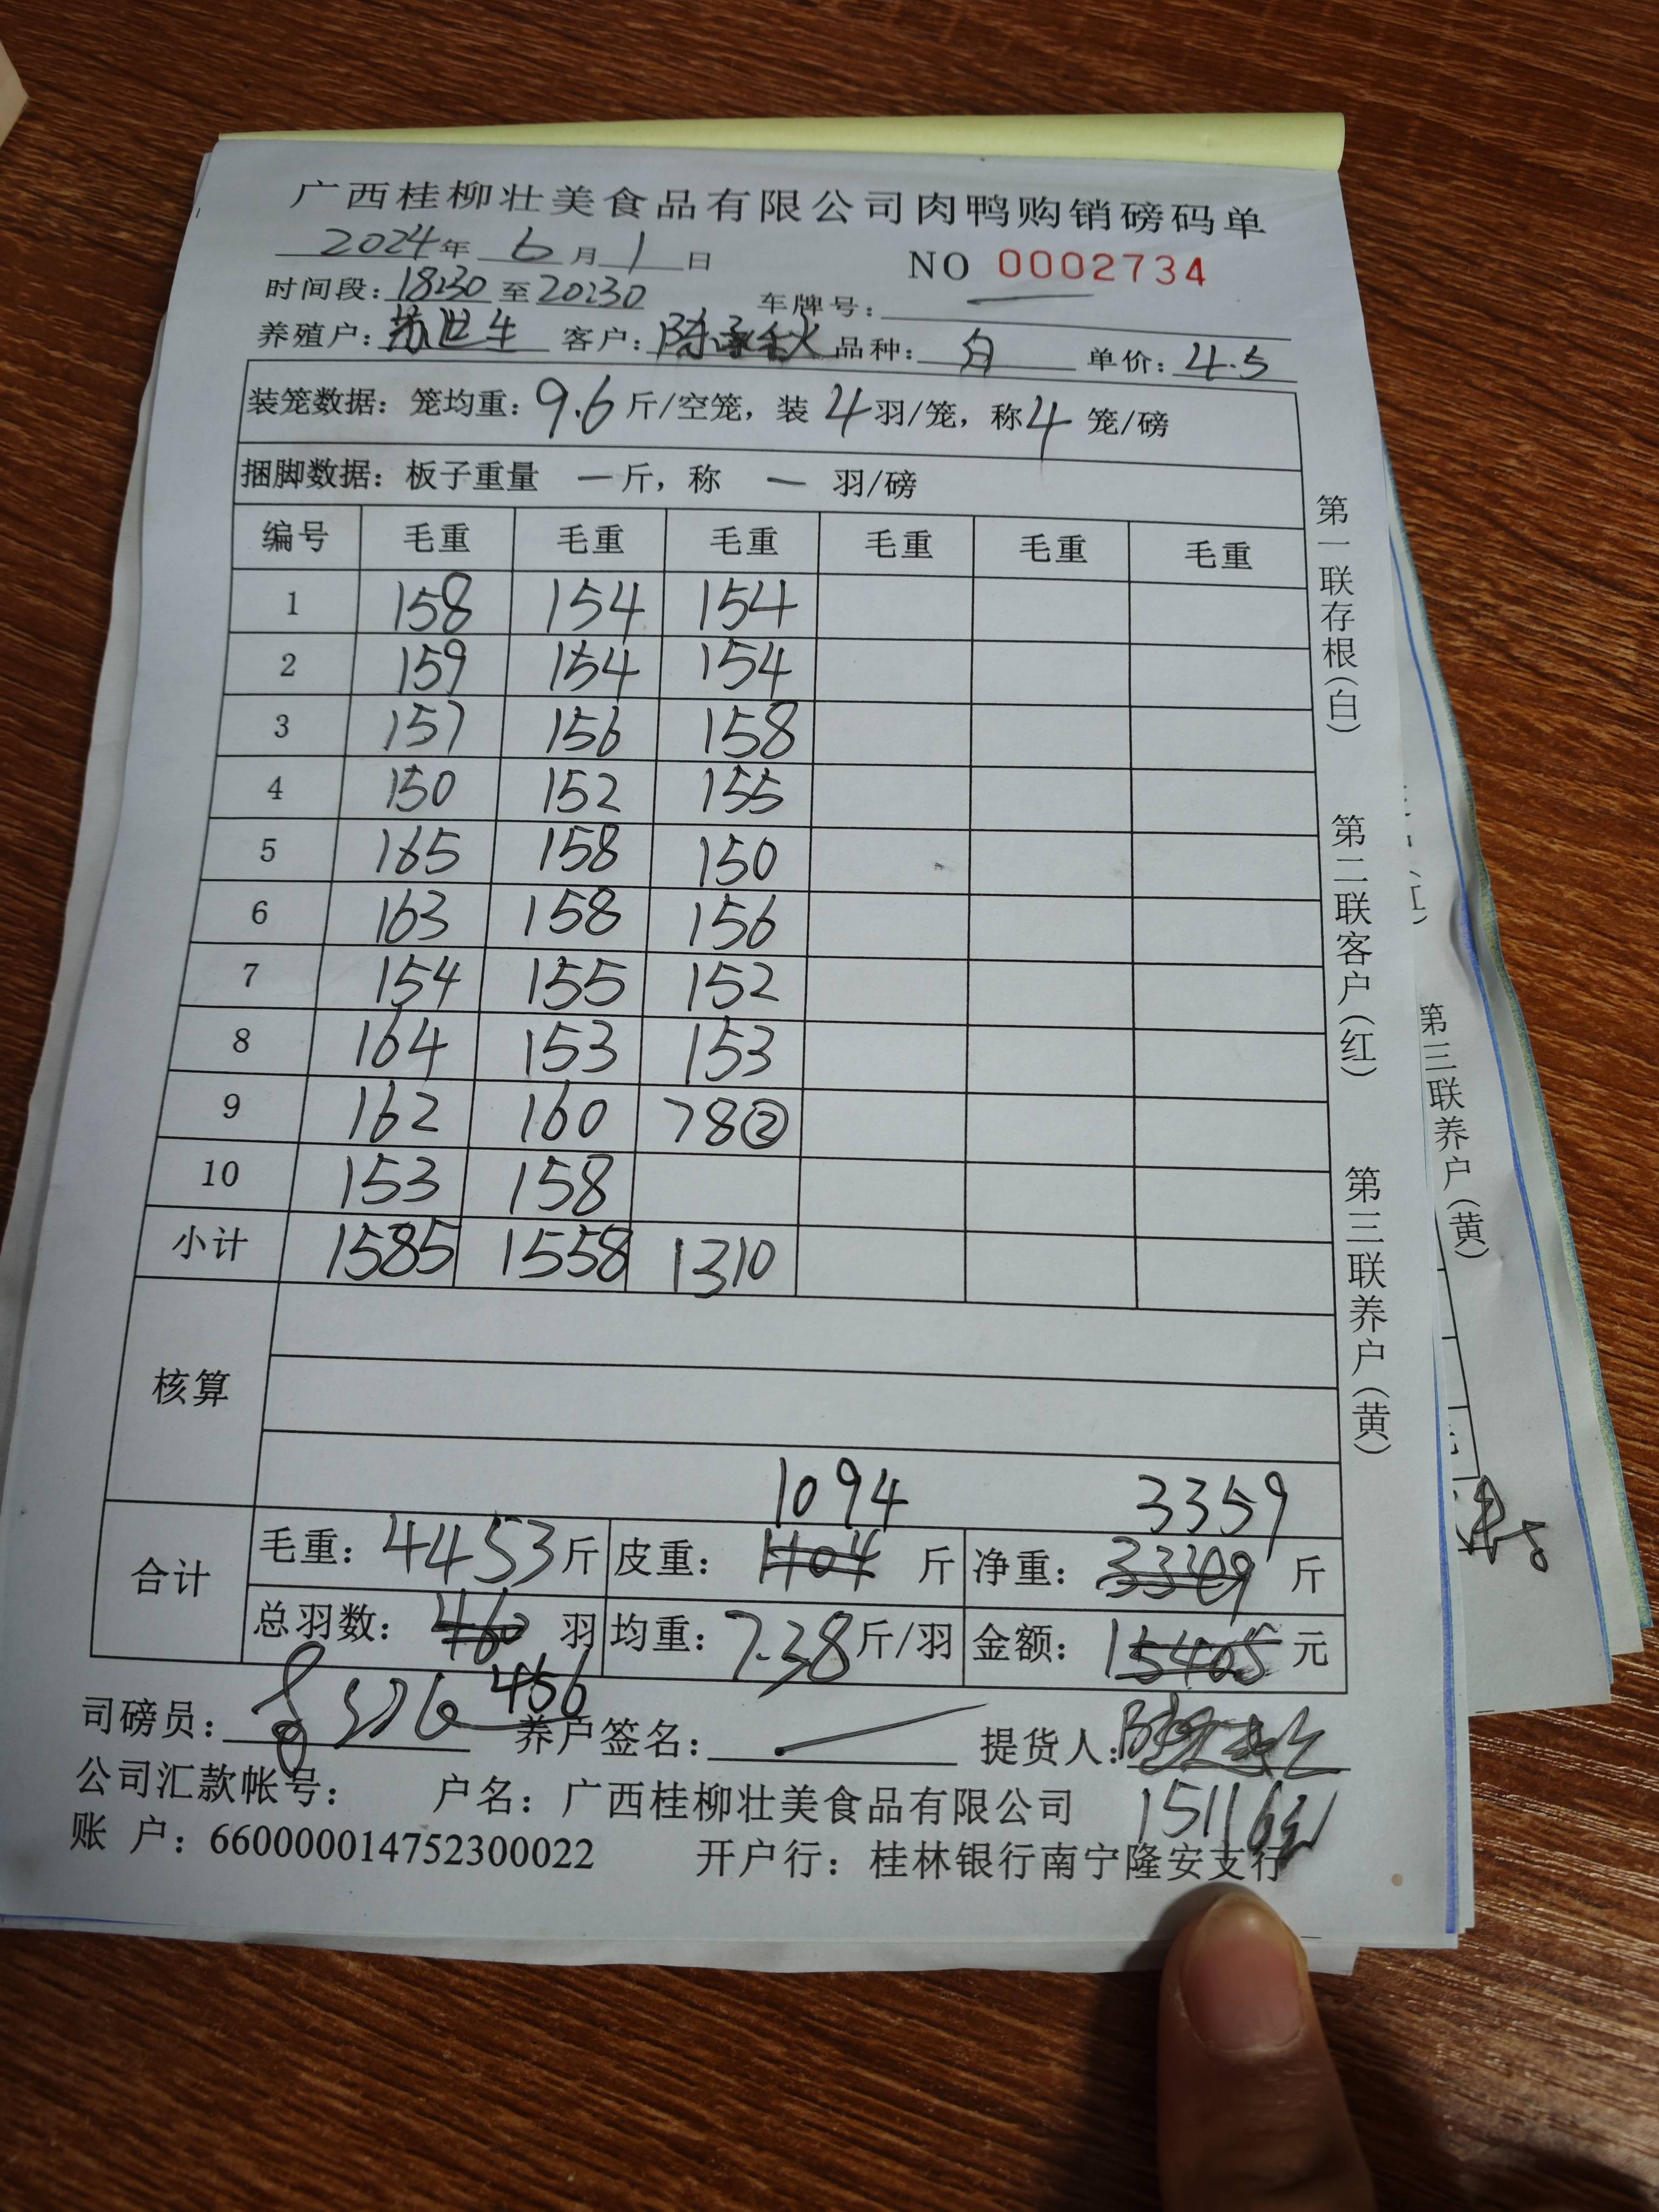 广西桂柳壮美食品有限公司肉鸭购销磅码单
2024年 6月 1日 NO 0002734
时间段：18:30 至 20:30 车牌号：—
养殖户：苏世生 客户：陈 秋 品种：白 单价：4.5
装笼数据：笼均重：9.6 斤/空笼，装 4 羽/笼，称 4 笼/磅
捆脚数据：板子重量 一 斤，称 一 羽/磅
编号 毛重 毛重 毛重 毛重 毛重 毛重
1 158 154 154
2 159 154 154
3 157 156 158
4 150 152 155
5 165 158 150
6 163 158 156
7 154 155 152
8 164 153 153
9 162 160 78②
10 153 158
小计 1585 1558 1310
核算
1094 3359
合计 毛重：4453斤 皮重：1104 斤 净重：3349 斤
总羽数：460 羽 均重：7.38斤/羽 金额：15405 元
456
司磅员： 养户签名：— 提货人：
公司汇款帐号： 户名：广西桂柳壮美食品有限公司
15116
账 户：660000014752300022 开户行：桂林银行南宁隆安支行
第一联存根（白）
第二联客户（红）
第三联养户（黄）
第三联养户（黄）